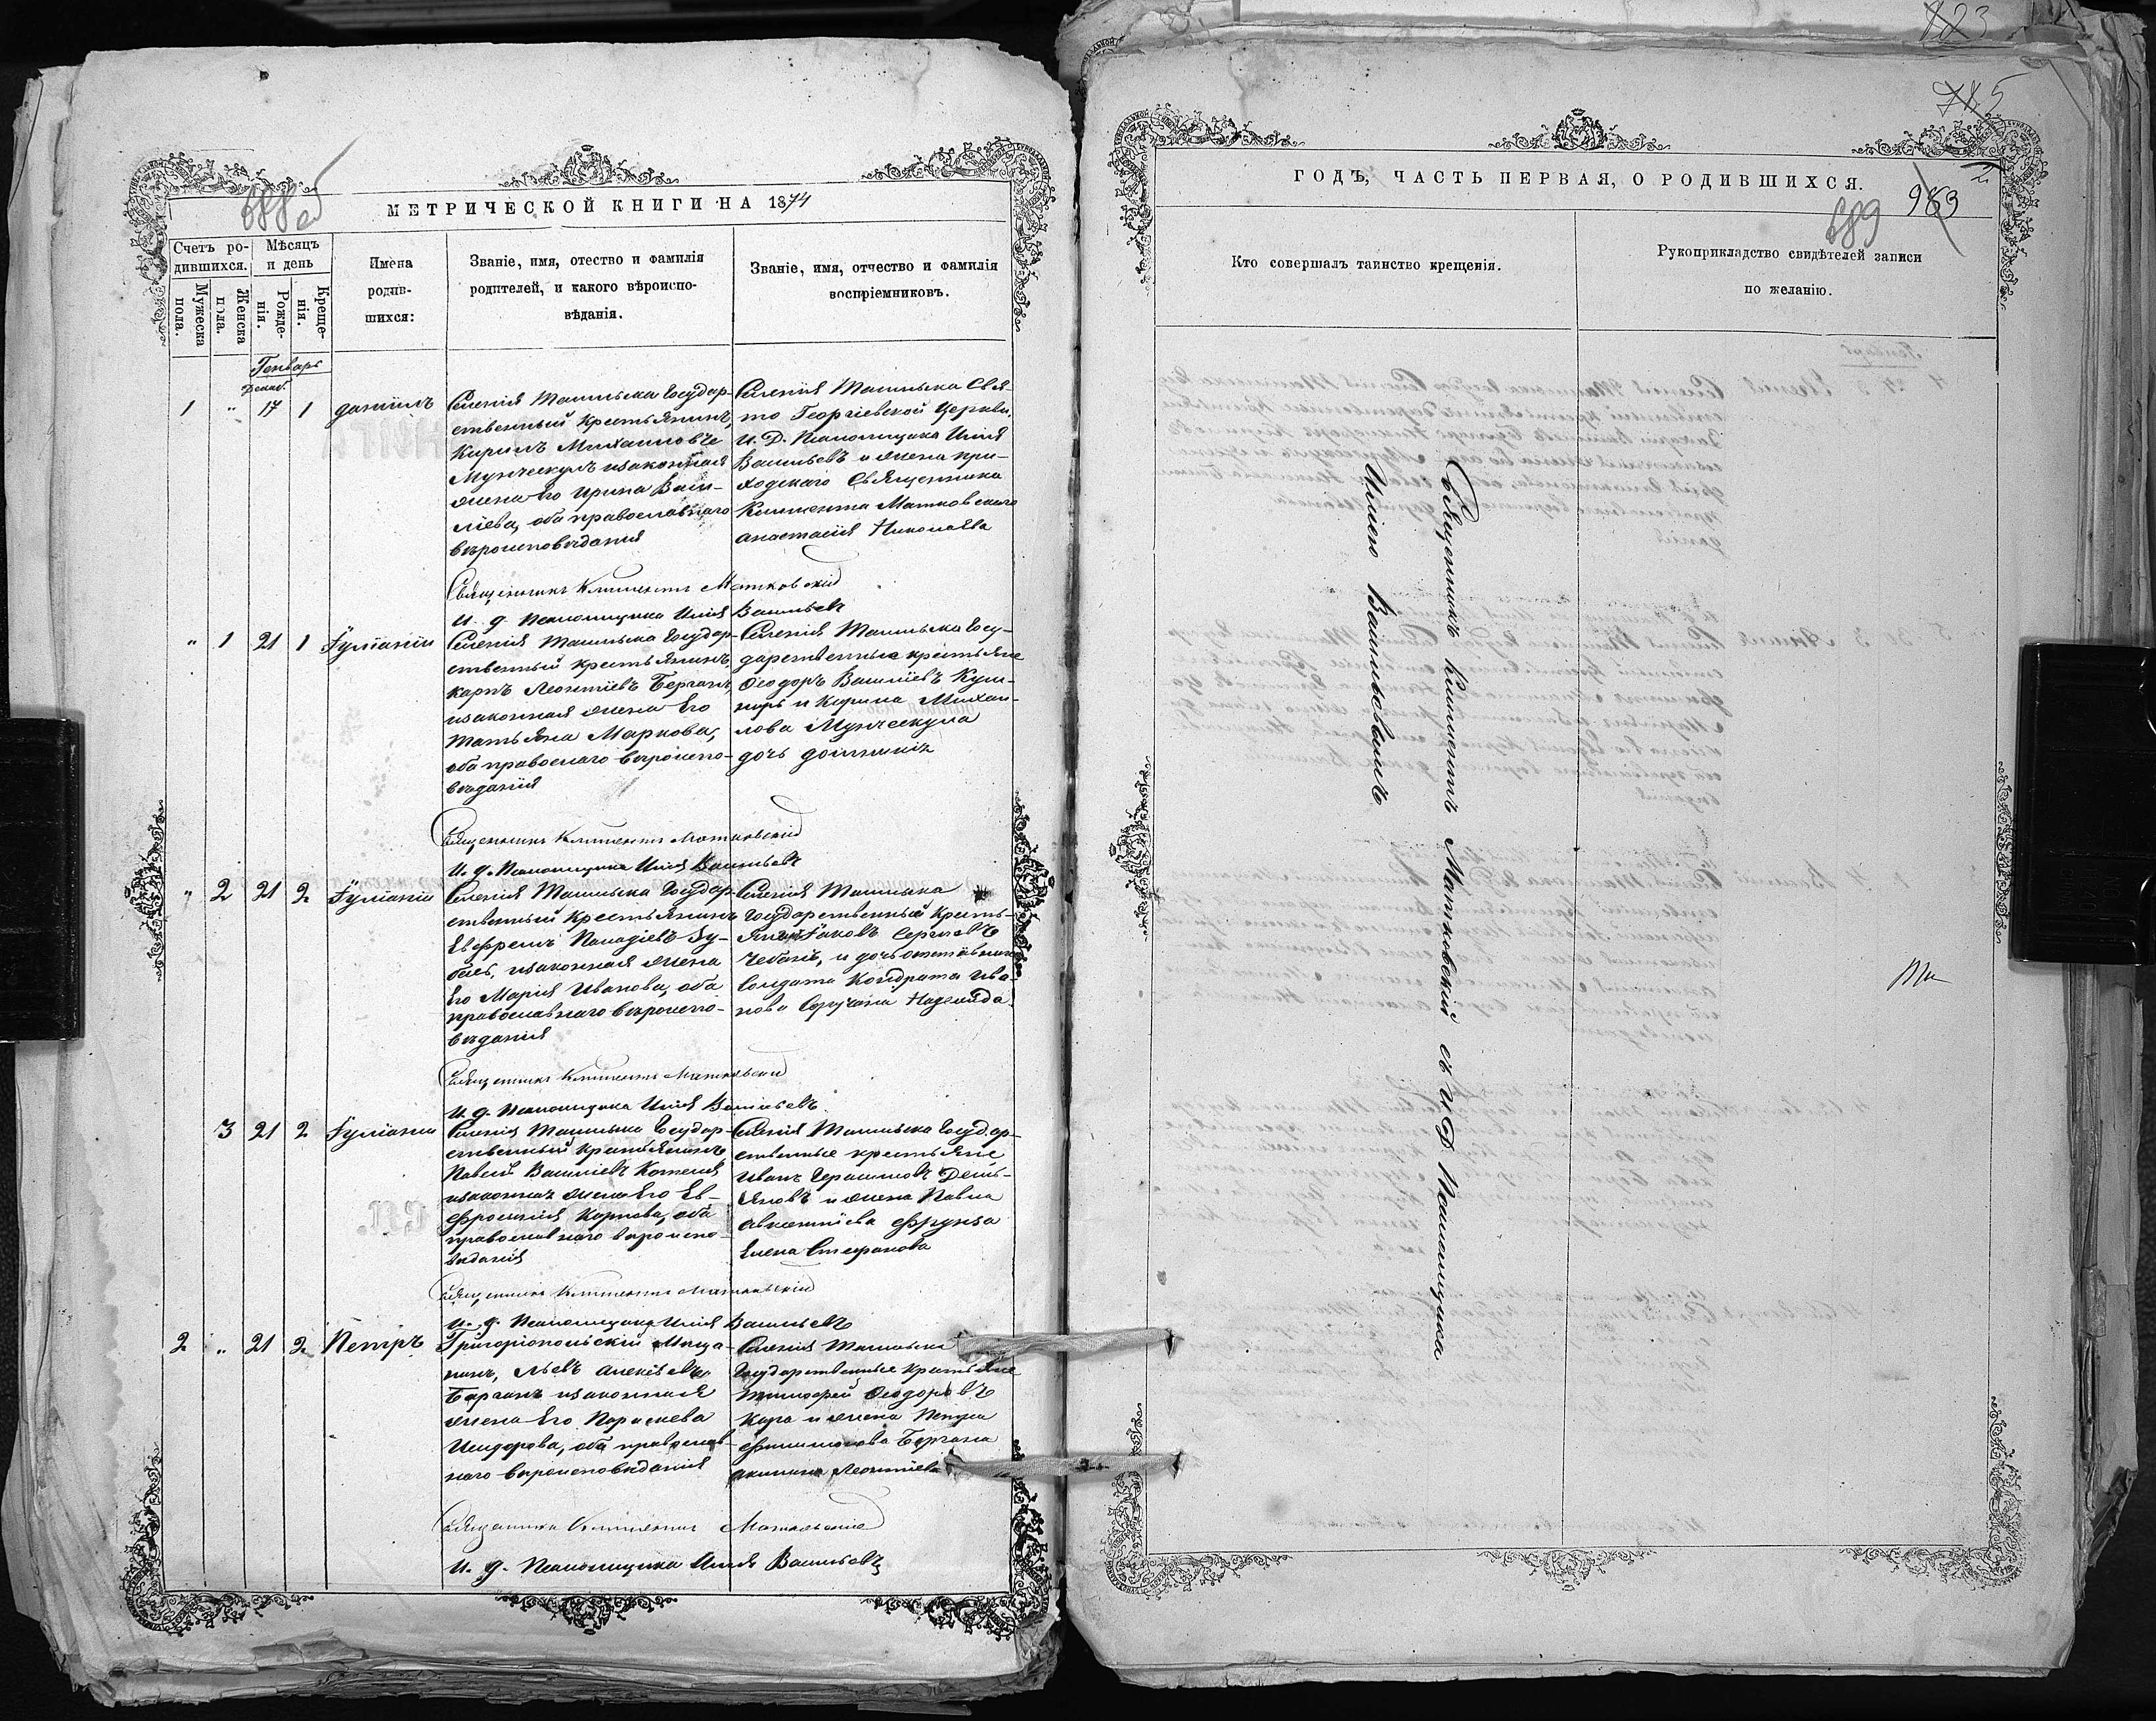 888 об
МЕТРИЧЕСКОЙ КНИГИ НА 1874
Счетъ ро-
дившихся.
Мѣсяцъ
и день
Мужеска
пола.
Женска
пола.
Рожде-
нія.
Креще-
нія.
Имена
родив-
шихся:
Званіе, имя, отество и фамилія
родителей, и какого вѣроиспо-
вѣданія.
Званіе, имя, отчество и фамилія
воспріемниковъ.
Генварь
Декаб.
1 " 17 1 Даніилъ
Селенія Ташлыка Государ-
ственный Крестьянинъ,
Кирилъ Михаиловъ
Мунческулъ изаконная
жена Его Ирина Васи-
ліева, оба православнаго
вѣроисповѣданія
Селенія Ташлыка Свя-
то Георгіевской Церкви,
И. Д. Псаломщика Илія
Васильевъ и жена при-
ходскаго Священника
Климента Матковскаго
Анастасія Николаева
Священникъ Климентъ Матковскій
И. д. Псаломщика Илія Васильевъ
" 1 21 1 Іуліанія
Селенія Ташлыка Государ-
ственный Крестьянинъ,
Карпъ Леонтіевъ Берганъ,
изаконная жена Его
Татьяна Маркова,
оба правоснаго вѣроиспо-
вѣданія
Селенія Ташлыка Госу-
дарственные крестьяне
Ѳеодоръ Василіевъ Куш-
нирь и Карпа Михаи-
лова Мунческула
дочь
Священникъ Климентъ Матковскій
И. д. Псаломщика Илія Васильевъ
" 2 21 2 Іуліанія
Селенія Ташлыка Государ-
ственный Крестьянинъ
Евфремъ
изаконная жена
Его Марія Иванова, оба
православнаго вѣроиспо-
вѣданія
Селенія Ташлыка
Государственный Кресть-
янинъ Іаковъ Сергіевъ
Чебанъ, и дочь отставнаго
Солдата Кондрата Ива-
нова Надежда
Священникъ Климентъ Матковскій
И. д. Псаломщика Илія Васильевъ
3 21 2 Іуліанія
Селенія Ташлыка Государ-
ственный Крестьянинъ
Павелъ Василіевъ
изаконная жена Его Ев-
фросинія Карпова, оба
православнаго вѣроиспо-
вѣданія
Селенія Ташлыка Государ-
ственные крестьяне
Иванъ Герасимовъ Демь-
яновъ и жена Павла
Авксентіева Фрунза
Елена Стефанова
Священникъ Климентъ Матковскій
И. д. Псаломщика Илія Васильевъ
2 " 21 2 Петръ
Григоріопольскій Мѣща-
нинъ, Львъ Алексѣевъ
Берганъ изаконная
жена Его Параскева
Исидорова, оба православ-
наго вѣроисповѣданія
Селенія Ташлыка
Государственные крестьяне
Тимофей Ѳеодоровъ
Кара и жена Петра
Филимонова Бергана
Акилина Леонтіева
Священникъ Климентъ Матковскій
И. д. Псаломщика Илія Васильевъ
123
ГОДЪ, ЧАСТЬ ПЕРВАЯ, О РОДИВШИХСЯ.
889
Кто совершалъ таинство крещенія.
Рукоприкладство свидѣтелей записи
по желанію.
Священникъ Климентъ Матковскій съ И Д Псаломщика
Иліею Васильевымъ